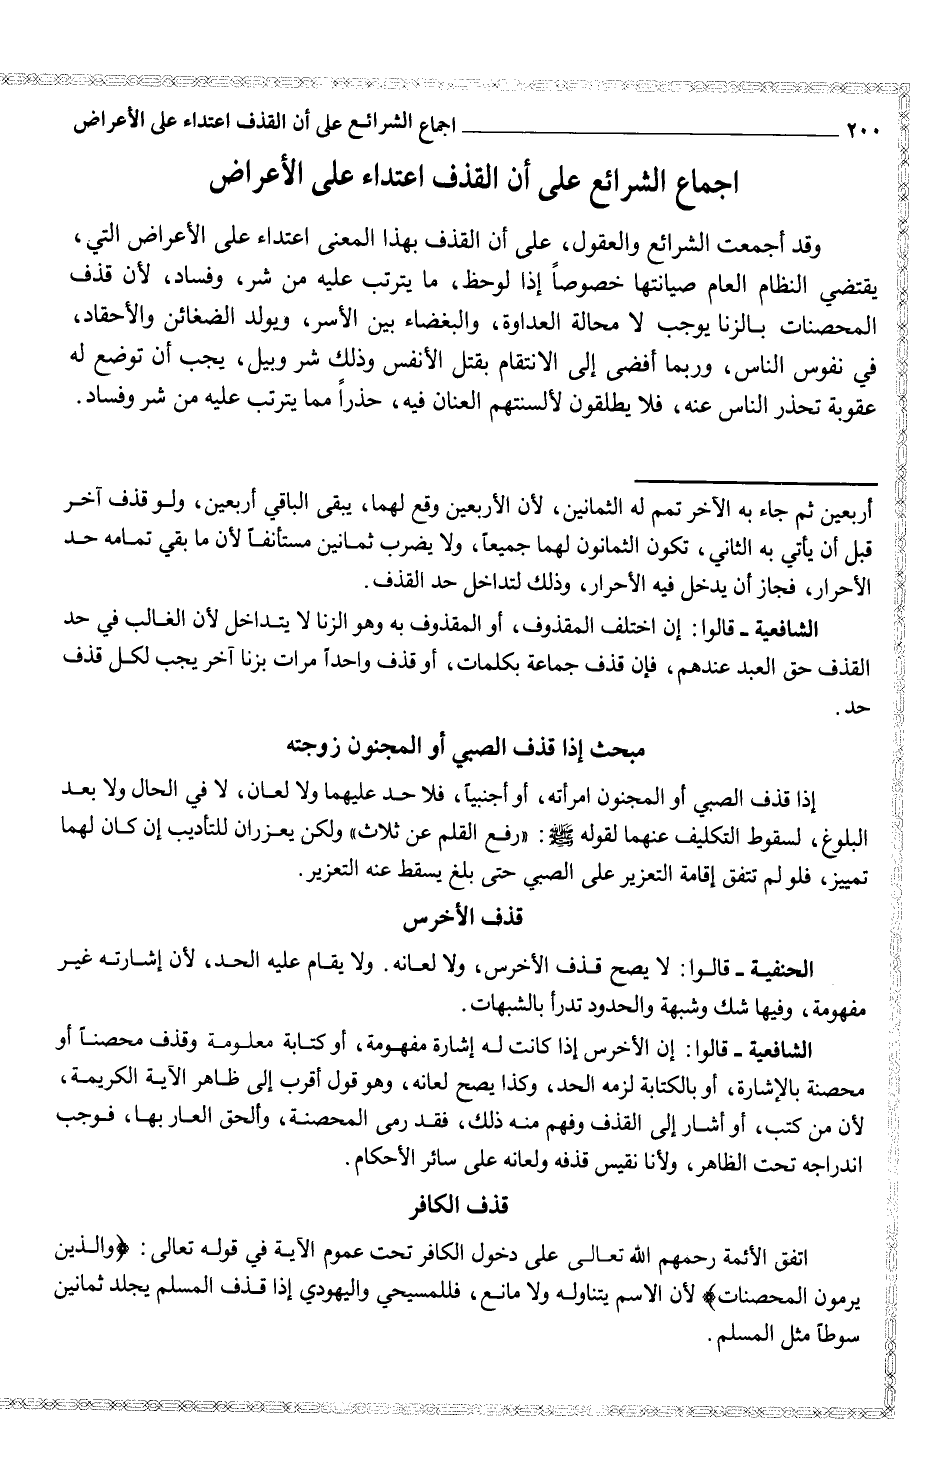 ٢٠٠ اجماع الشرائع على أن القذف اعتداء على الأعراض
اجماع الشرائع على أن القذف اعتداء على الأعراض
وقد أجمعت الشرائع والعقول، على أن القذف بهذا المعنى اعتداء على الأعراض التي،
يقتضي النظام العام صيانتها خصوصاً إذا لوحظ، ما يترتب عليه من شر، وفساد، لأن قذف
المحصنات بالزنا يوجب لا محالة العداوة، والبغضاء بين الأسر، ويولد الضغائن والأحقاد،
في نفوس الناس، وربما أفضى إلى الانتقام بقتل الأنفس وذلك شر وبيل، يجب أن توضع له
عقوبة تحذر الناس عنه، فلا يطلقون لألسنتهم العنان فيه، حذراً مما يترتب عليه من شر وفساد.
أربعين ثم جاء به الآخر تمم له الثمانين، لأن الأربعين وقع لهما، يبقى الباقي أربعين، ولو قذف آخر
قبل أن يأتي به الثاني، تكون الثمانون لهما جميعاً، ولا يضرب ثمانين مستأنفاً لأن ما بقي تمامه حد
الأحرار، فجاز أن يدخل فيه الأحرار، وذلك لتداخل حد القذف.
الشافعية ـ قالوا: إن اختلف المقذوف، أو المقذوف به وهو الزنا لا يتداخل لأن الغالب في حد
القذف حق العبد عندهم، فإن قذف جماعة بكلمات، أو قذف واحداً مرات بزنا آخر يجب لكل قذف
حد.
مبحث إذا قذف الصبي أو المجنون زوجته
إذا قذف الصبي أو المجنون امرأته، أو أجنبياً، فلا حد عليهما ولا لعان، لا في الحال ولا بعد
البلوغ، لسقوط التكليف عنهما لقوله ﷺ: «رفع القلم عن ثلاث» ولكن يعزران للتأديب إن كان لهما
تمييز، فلو لم تتفق إقامة التعزير على الصبي حتى بلغ يسقط عنه التعزير.
قذف الأخرس
الحنفية ـ قالوا: لا يصح قذف الأخرس، ولا لعانه. ولا يقام عليه الحد، لأن إشارته غير
مفهومة، وفيها شك وشبهة والحدود تدرأ بالشبهات.
الشافعية ـ قالوا: إن الأخرس إذا كانت له إشارة مفهومة، أو كتابة معلومة وقذف محصناً أو
محصنة بالإشارة، أو بالكتابة لزمه الحد، وكذا يصح لعانه، وهو قول أقرب إلى ظاهر الآية الكريمة،
لأن من كتب، أو أشار إلى القذف وفهم منه ذلك، فقد رمى المحصنة، وألحق العار بها، فوجب
اندراجه تحت الظاهر، ولأنا نقيس قذفه ولعانه على سائر الأحكام.
قذف الكافر
اتفق الأئمة رحمهم الله تعالى على دخول الكافر تحت عموم الآية في قوله تعالى: ﴿والذين
يرمون المحصنات﴾ لأن الاسم يتناوله ولا مانع، فللمسيحي واليهودي إذا قذف المسلم يجلد ثمانين
سوطاً مثل المسلم.